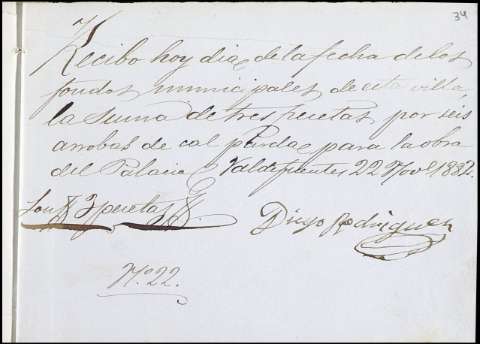 34
Recibo hoy dia de la fecha de los
fondos municipales de esta villa,
la suma de tres pesetas por seis
arrobas de cal parda para la obra
del Palacio Valdefuentes 22 Nov. 1882.
Son # 3 pesetas #.
Diego Rodriguez
No. 22.